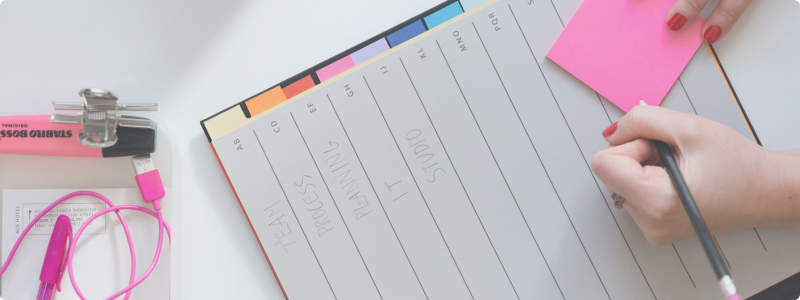 STABILO BOSS
ORIGINAL
ACE HOTEL
AB
CD
EF
GH
IJ
KL
MNO
PQR
S
TEAM
PROCESS
PLANNING
IT
STUDIO